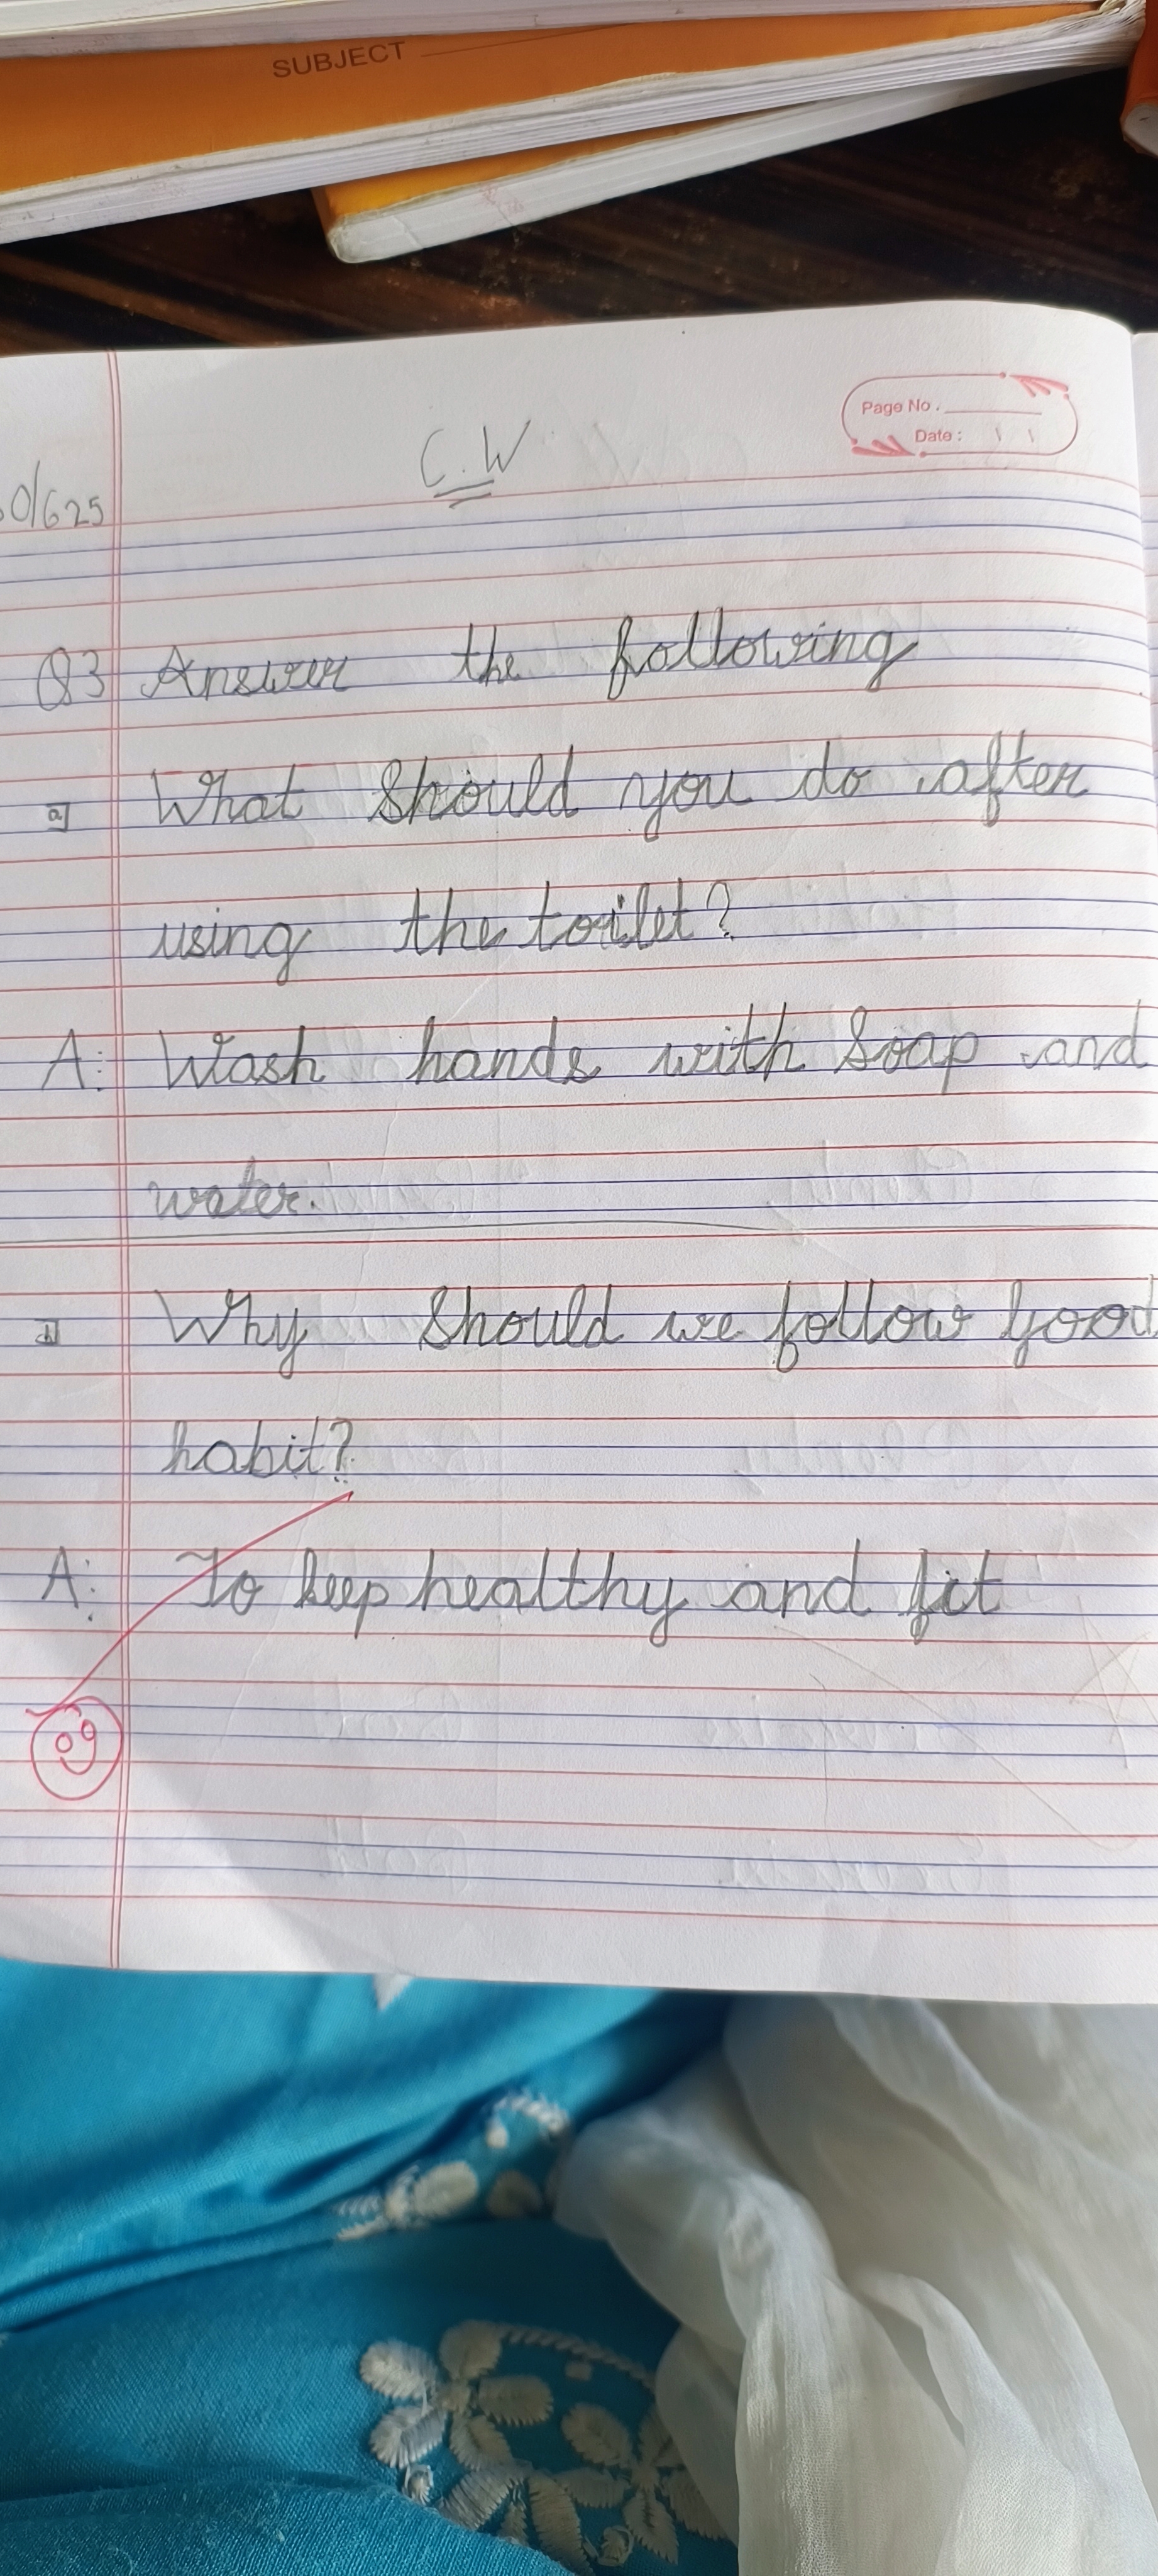 SUBJECT
Page No.
Date :
C.W
0/625
Q3 Answer the following
a] What Should you do after
using the toilet?
A: Wash hands with Soap and
water.
b] Why Should we follow good
habit?
A: To keep healthy and fit